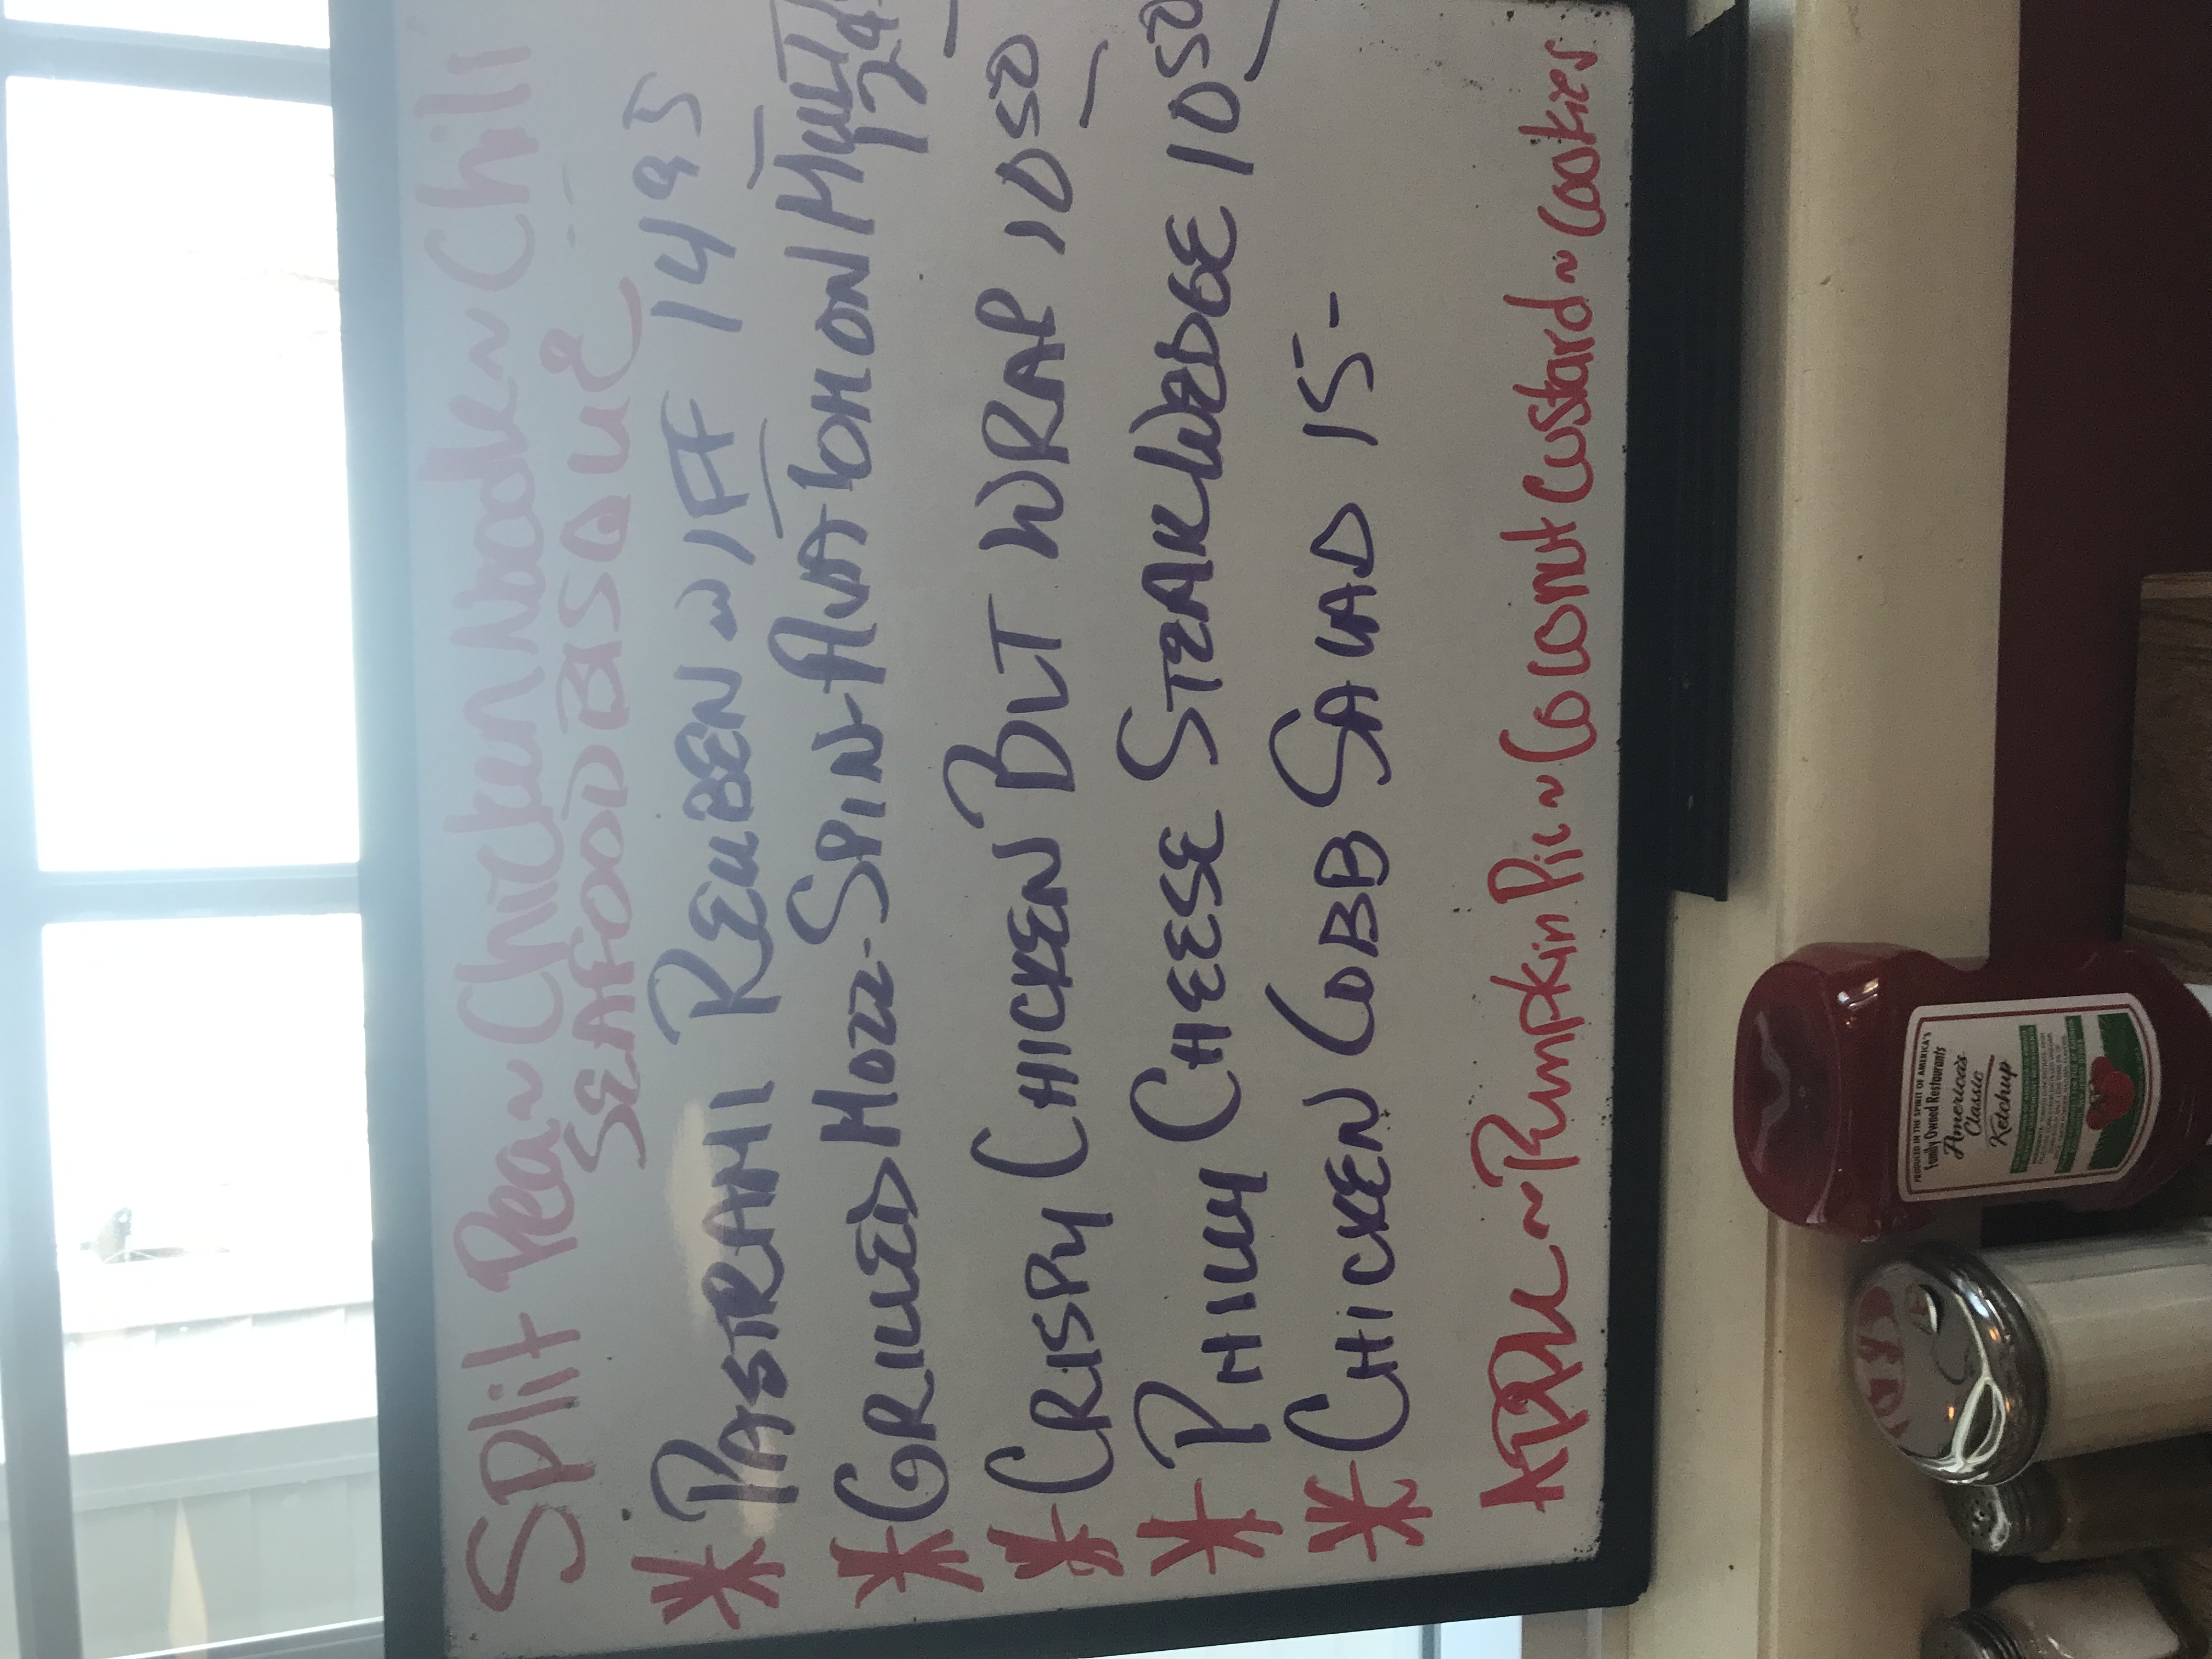 Split Pea ~ Chicken Noodle ~ Chili
SEAFOOD BASQUE
* PASTRAMI REUBEN W/FF 14 95
* GRILLED MOZZ-SPIN-AVA TOM ON MULTI 12
* CRISPY CHICKEN BLT WRAP 10 50
* PHILLY CHEESE STEAK WEDGE 10 50
* CHICKEN COBB SALAD 15-
APPLE ~ Pumpkin Pie ~ Coconut Custard ~ Cookies
PRODUCED IN THE SPIRIT OF AMERICA'S
Family Owned Restaurants
America's
Classic
Ketchup